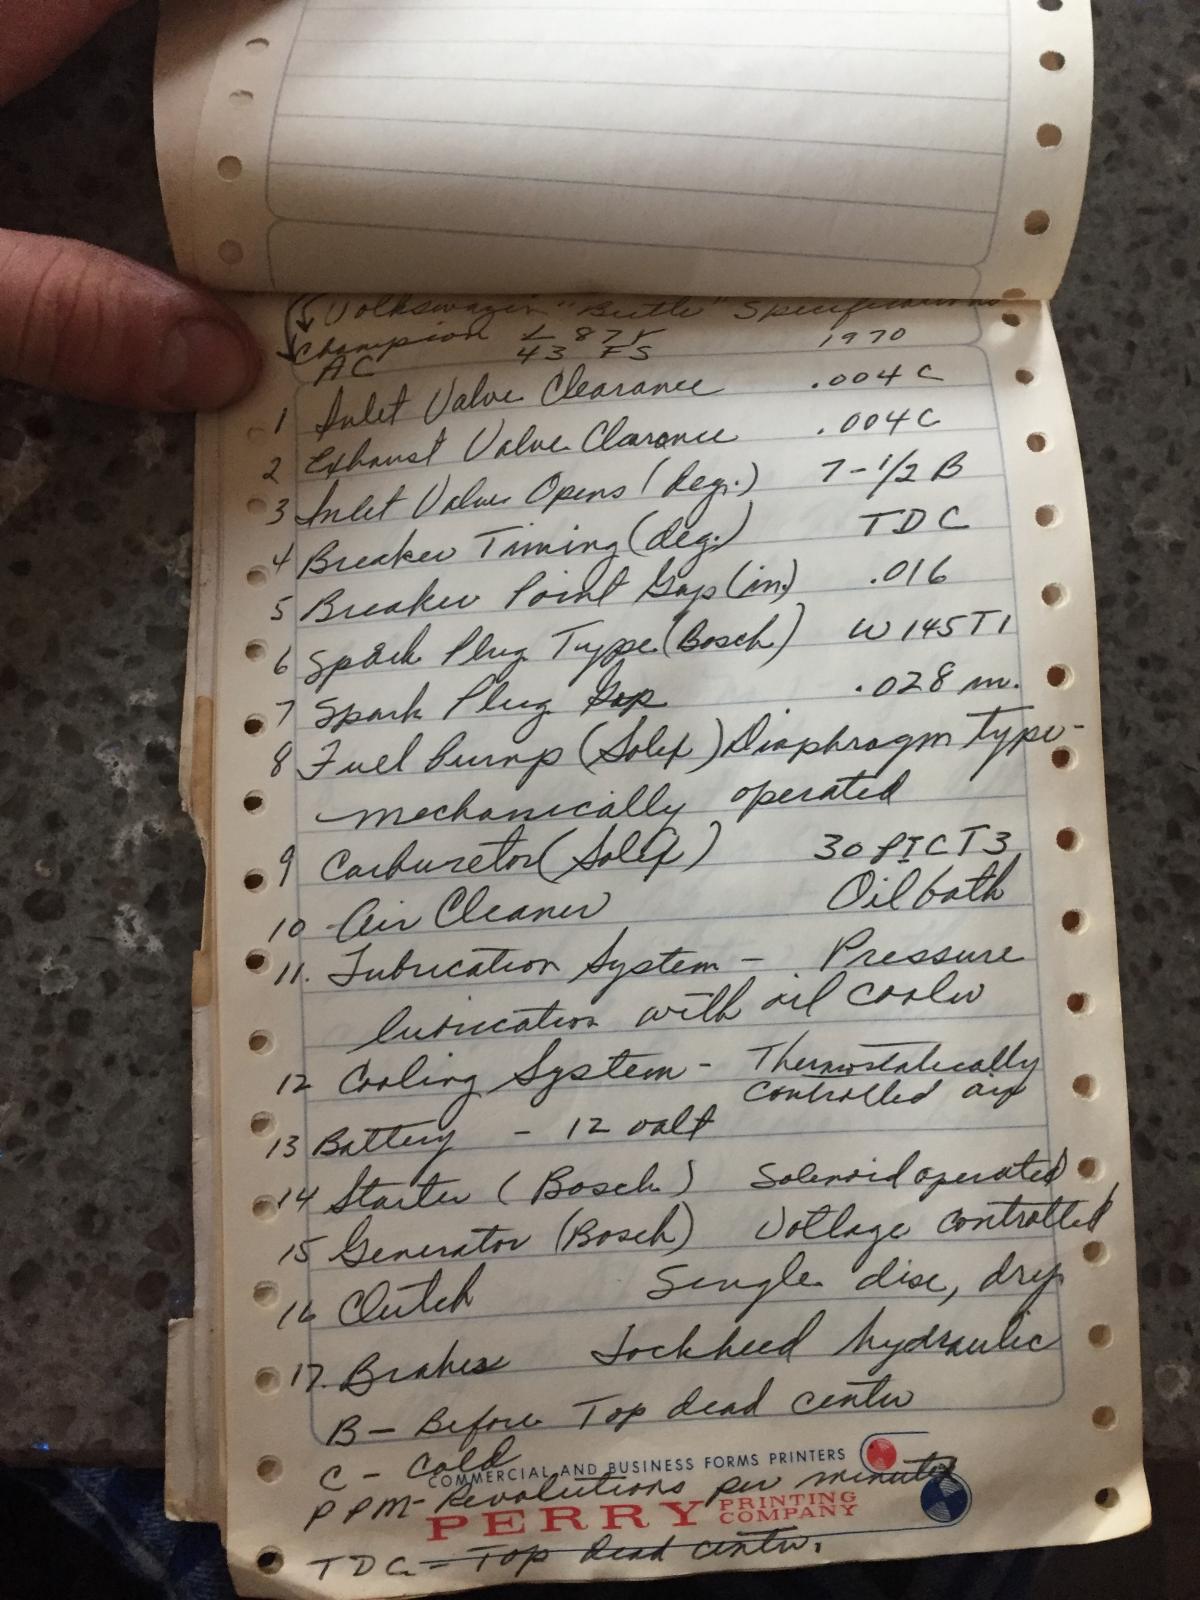 Volkswagen "Beetle" Specifications
Champion L 87Y 1970
AC 43 FS
1 Inlet Valve Clearance .004 C
2 Exhaust Valve Clarance .004 C
3 Inlet Valve Opens (deg.) 7-1/2 B
4 Breaker Timing (deg.) TDC
5 Breaker Point Gap (in) .016
6 Spark Plug Type (Bosch) W145T1
7 Spark Plug Gap .028 in.
8 Fuel Pump (Solex) Diaphragm type-
mechanically operated
9 Carburetor (Solex) 30 PICT3
10 Air Cleaner Oil bath
11. Lubrication System - Pressure
lubrication with oil cooler
12 Cooling System - Thermostatically
controlled air
13 Battery - 12 volt
14 Starter (Bosch) Solenoid operated
15 Generator (Bosch) Voltage controlled
16 Clutch Single disc, dry
17. Brakes Lockheed hydraulic
B - Before Top dead center
C - Cold
COMMERCIAL AND BUSINESS FORMS PRINTERS
PPM - Revolutions per minute
PERRY PRINTING COMPANY
TDC = Top dead center.